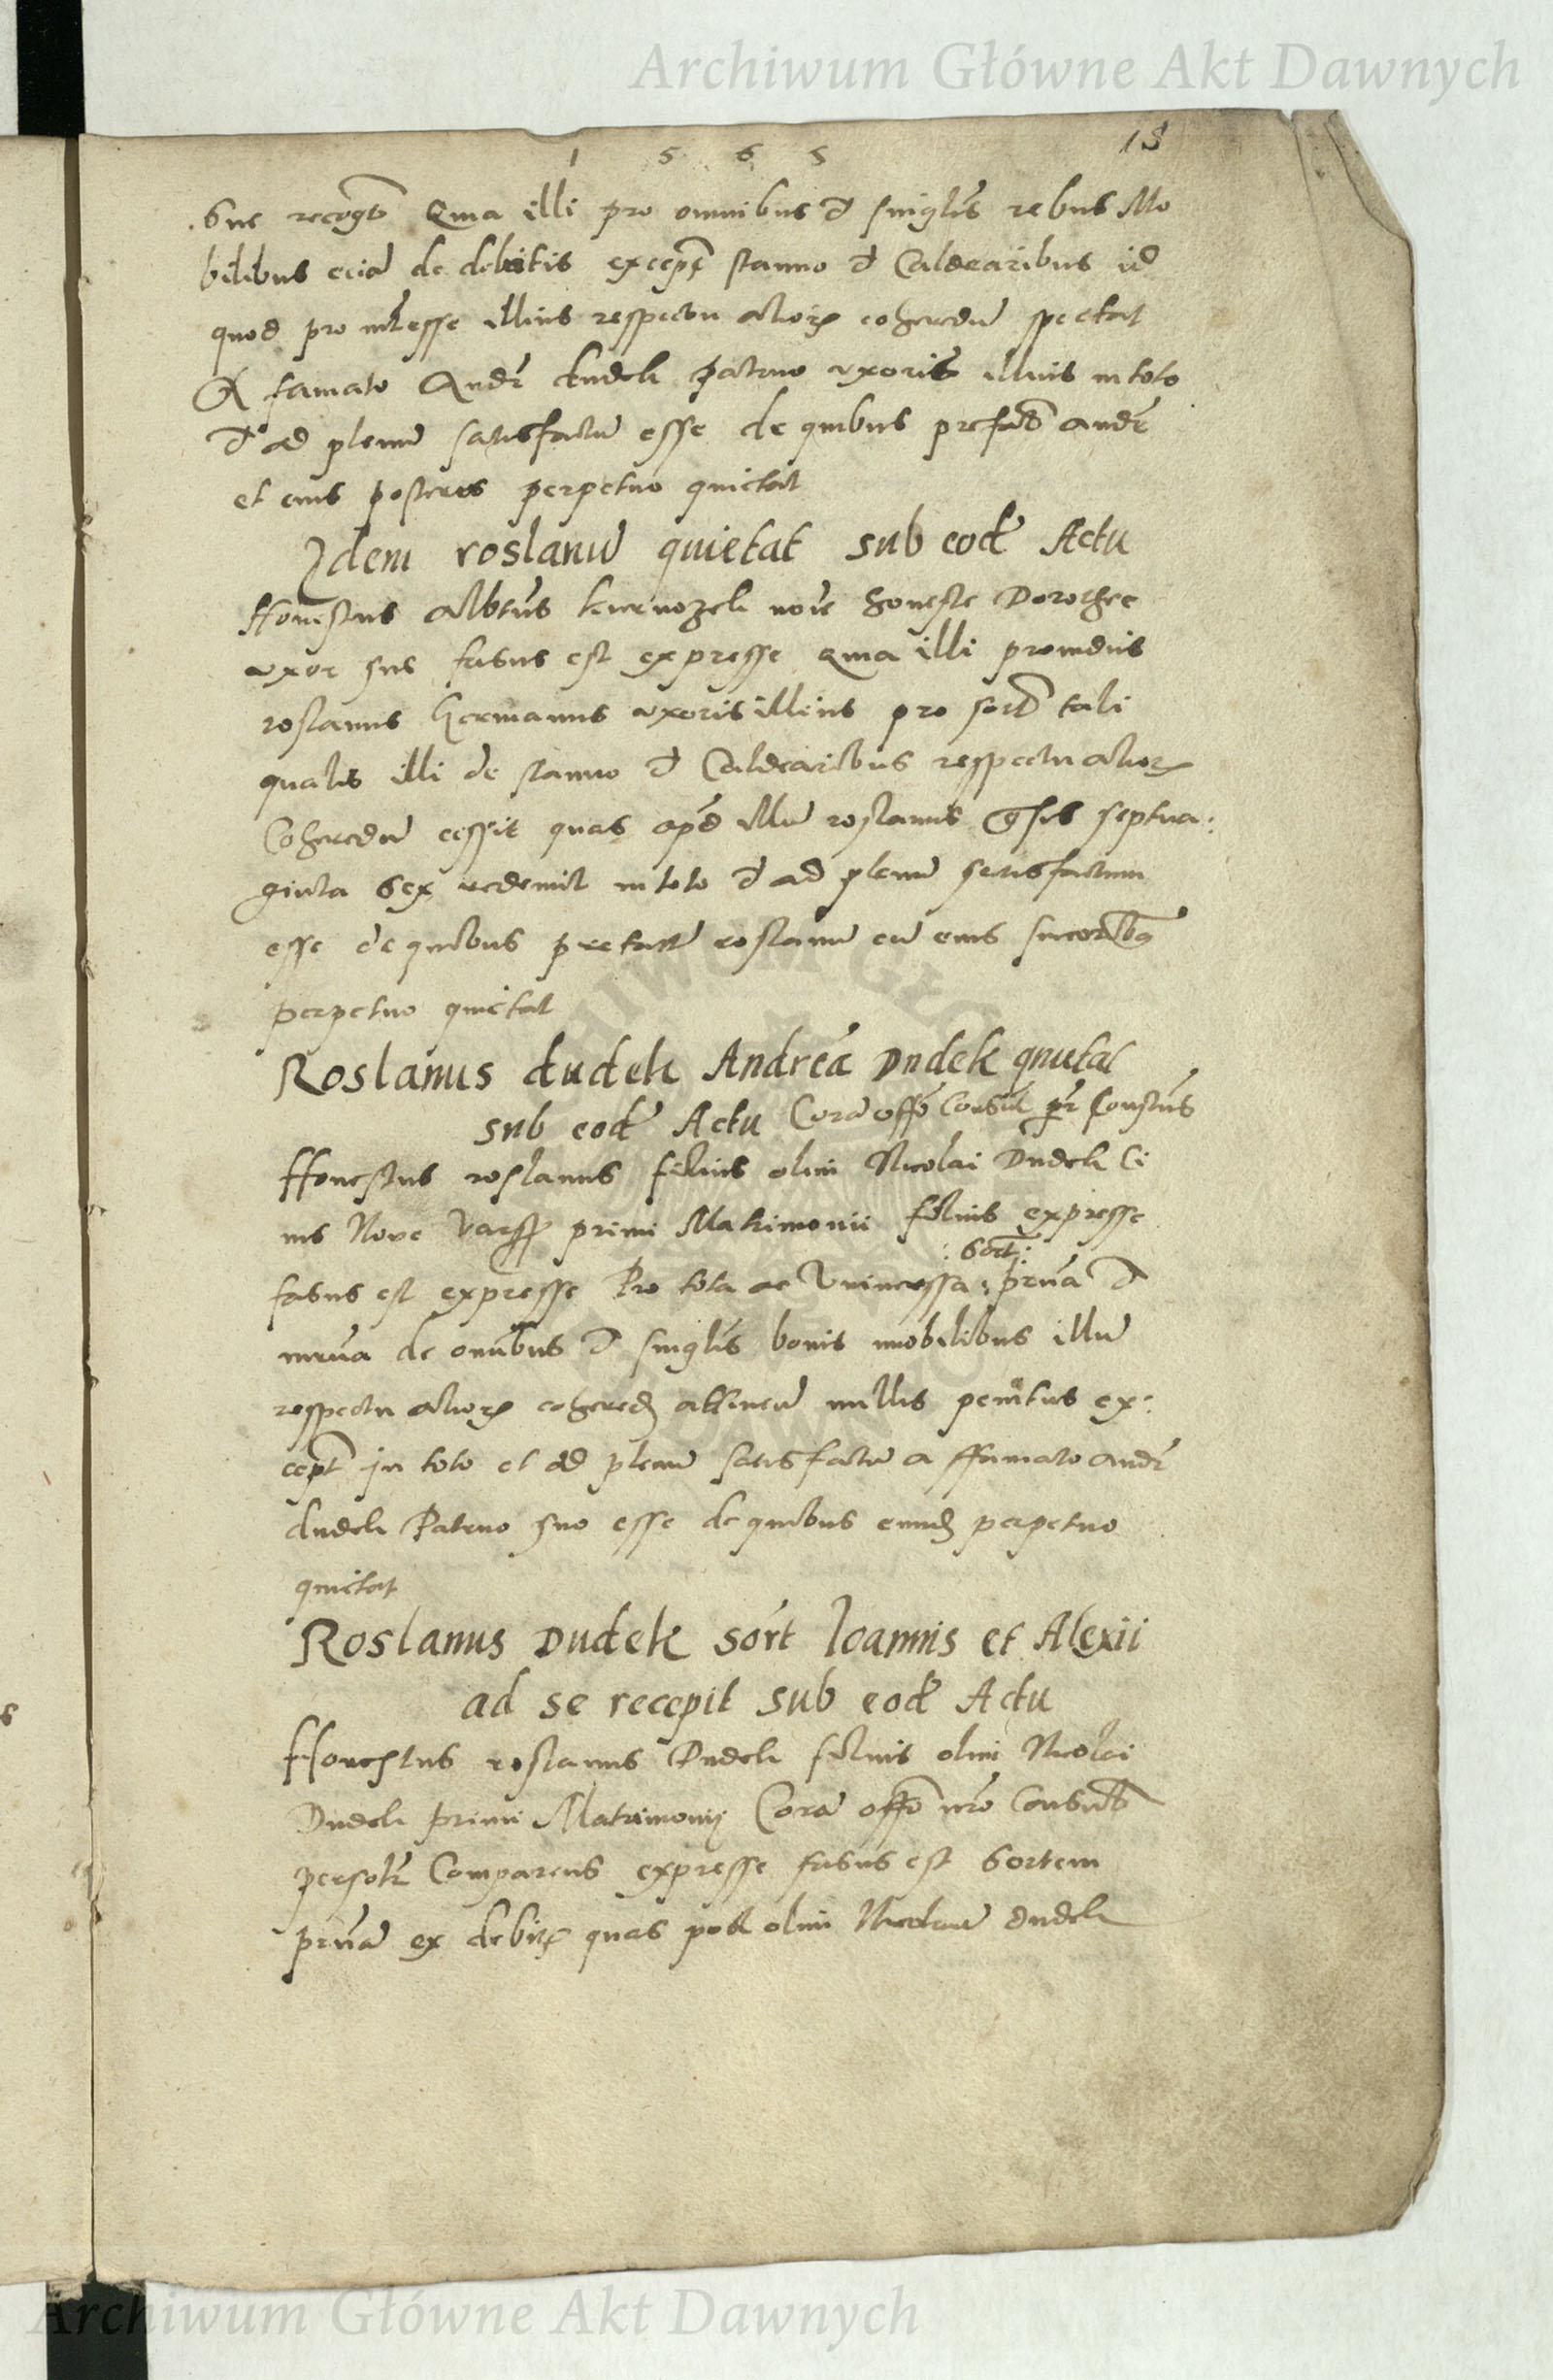 Archiwum Główne Akt Dawnych
1 5 6 5
sue recogt Quia illi pro omnibus et singlis rebus Mo
bilibus ecia de debitis except stanno et Caldearibus id
quod pro interesse illius respectu alior coheredu spectat
A famato Andr dudek patruo uxoris illius in toto
et ad plenu satisfactu esse de quibus prefad Andr
et eius posteros perpetuo quietat
Idem roslanu quietat sub eod Actu
Honestus Albtus noie honeste Dorothee
uxor sue fasus est expresse Quia illi prouidus
roslanus germanus uxoris illius pro sort tali
qualis illi de stanno et Caldearibus respectu alior
Coheredu cessit quas apd illu roslanus septua:
ginta sex redemit in toto et ad plenu satisfactum
esse de quibus prefatu roslanu cu eius succorbq
perpetuo quietat
Roslanus dudek Andrea Dudek quietat
sub eod Actu Cora offo Consul
Honestus roslanus filius olim Nicolai Dudek Ci
uis Noue Vars primi Matrimonii filius expresse
: Sort :
fasus est expresse Pro tota ac Vniuerssa : prna et
mrna de omibus et singlis bonis mobilibus illu
respectu alior cohered attineu nullis penitus ex:
cept In toto et ad plenu satisfactu a ffamato Andr
dudek Patruo suo esse de quibus eund perpetuo
quietat
Roslanus Dudek sort Ioannis et Alexii
ad se recepit sub eod Actu
Honestus roslanus Dudek filius olim Nicolai
Dudek primi Matrimonij Cora offo nro Consulb
personlr Comparens expresse fasus est Sortem
prna ex debit quas post olim Nicolau dudek
Archiwum Główne Akt Dawnych